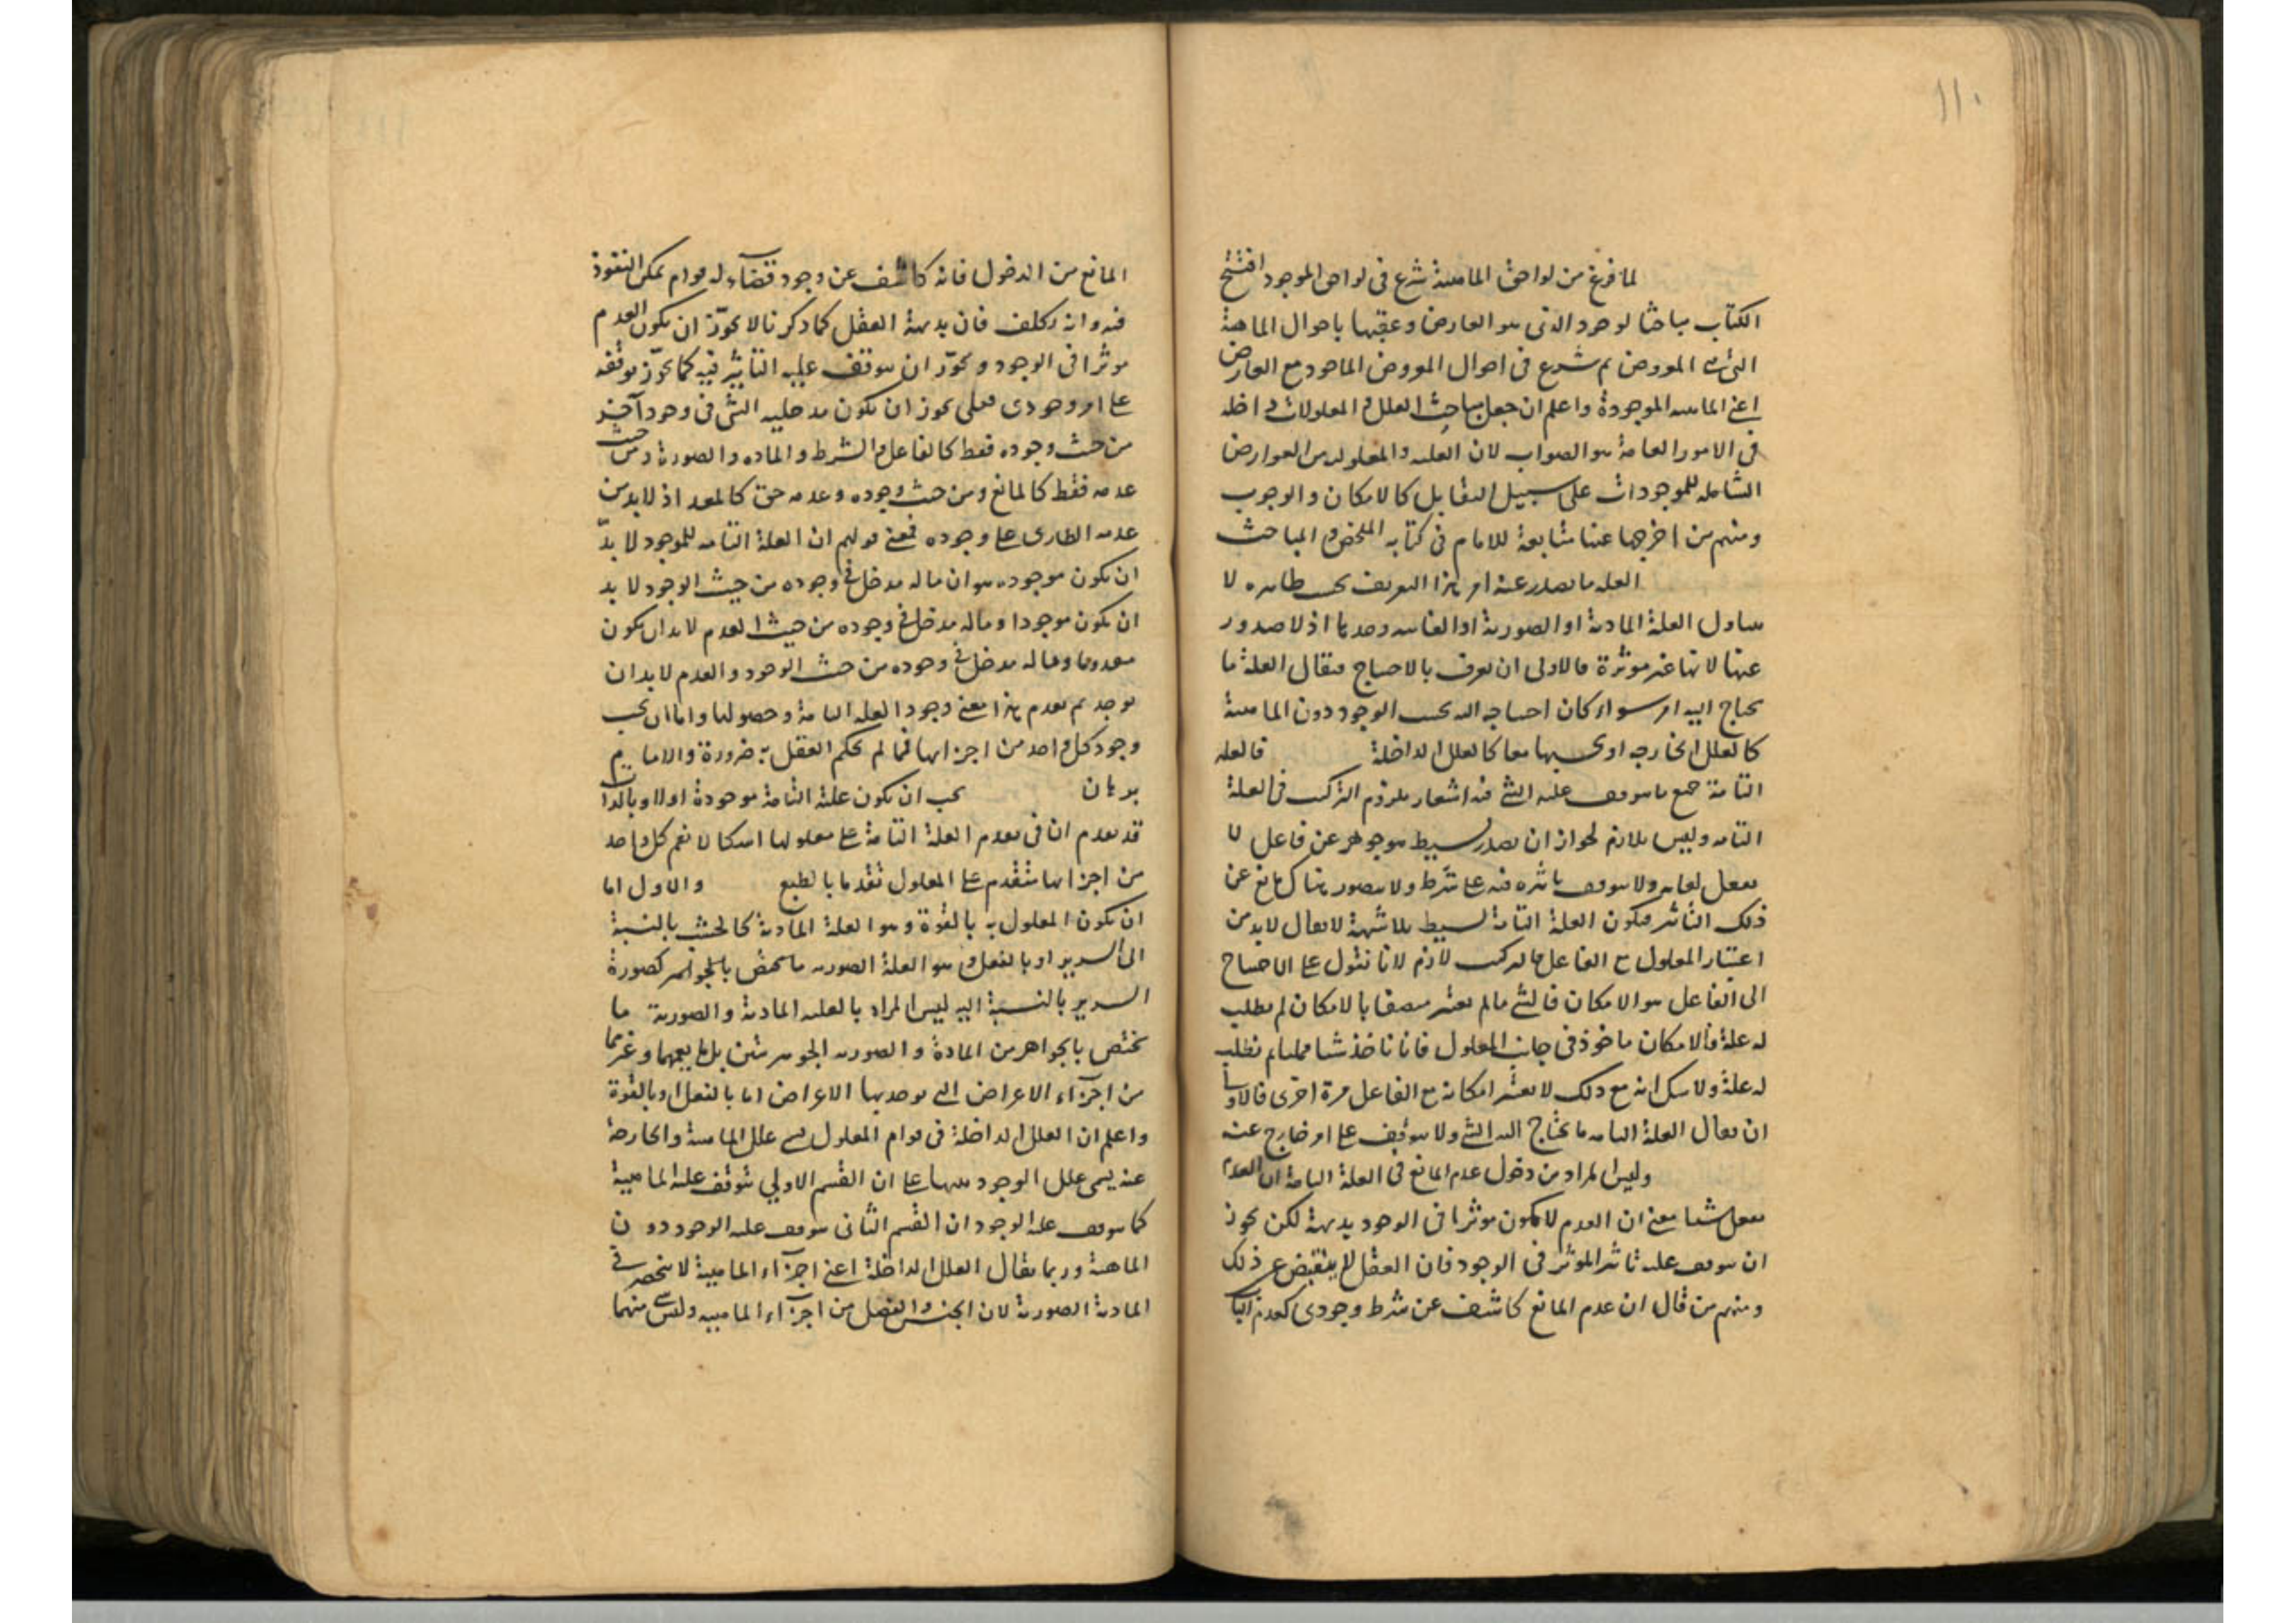 ١١٠
لما فرغ من لواحق الماهية شرع فى لواحق الموجود افتتح
الكتاب مباحثا لوجود الذى هو العارض وعقبها باحوال الماهية
التى هى المعروض ثم شرع فى احوال المعروض الماخوذ مع العارض
اعنى الماهية الموجودة واعلم ان جعل مباحث العلل والمعلولات داخلة
فى الامور العامة هو الصواب لان العلية والمعلولية من العوارض
الشاملة للموجودات على سبيل التقابل كالامكان والوجوب
ومنهم من اخرجها عنها متابعة للامام فى كتابيه الملخص والمباحث
العلة ما يصدر عنه امر هذا التعريف بحسب ظاهره لا
يتناول العلة المادية او الصورية او الغائية وحدها اذ لا صدور
عنها لانها غير موثرة فالاولى ان يعرف بالاحتياج فيقال العلة ما
يحتاج اليه امر سواء كان احتياجه اليه بحسب الوجود دون الماهية
كالعلل الخارجة او بحسبهما معا كالعلل الداخلة فالعلة
التامة جميع ما يتوقف عليه الشئ فيه اشعار بلزوم التركيب فى العلة
التامة وليس بلازم لجواز ان يصدر بسيط موجود عن فاعل لا
يفعل لغاية ولا يتوقف تاثيره فيه على شرط ولا يتصور هناك مانع عن
ذلك التاثير فيكون العلة التامة بسيط بلا شبهة لا يقال لا بد من
اعتبار المعلول مع الفاعل فالتركيب لازم لانا نقول علة الاحتياج
الى الفاعل هو الامكان فالشئ ما لم يعتبر متصفا بالامكان لم يطلب
له علة فالامكان ماخوذ فى جانب المعلول فانا ناخذ شيئا ممكنا ثم نطلب
له علة ولا شك انه مع ذلك لا يعتبر امكانه مع الفاعل مرة اخرى فالاولى
ان يقال العلة التامة ما يحتاج اليه الشئ ولا يتوقف على امر خارج عنه
وليس المراد من دخول عدم المانع فى العلة التامة ان العدم
يفعل شيئا يعنى ان العدم لا يكون موثرا فى الوجود بديهة لكن يجوز
ان يتوقف عليه تاثير المؤثر فى الوجود فان العقل لا ينقبض عن ذلك
ومنهم من قال ان عدم المانع كاشف عن شرط وجودى كعدم الباب
المانع من الدخول فانه كاشف عن وجود فضاء له قوام يمكن النفوذ
فيه وانه تكلف فان بديهة العقل كما ذكرنا لا يجوز ان يكون العدم
موثرا فى الوجود ويجوز ان يتوقف عليه التاثير فيه كما يجوز توقفه
على امر وجودى فعلى يجوز ان يكون مدخلية الشئ فى وجود آخر
من حيث وجوده فقط كالفاعل والشرط والمادة والصورة ومن حيث
عدمه فقط كالمانع ومن حيث وجوده وعدمه حق كالمعد اذ لا بد من
عدمه الطارى على وجوده فمعنى قولهم ان العلة التامة للموجود لا بد
ان يكون موجودة هو ان ما له مدخل فى وجوده من حيث الوجود لا بد
ان يكون موجودا وما له مدخل فى وجوده من حيث العدم لا بد ان يكون
معدوما وما له مدخل فى وجوده من حيث الوجود والعدم لا بد ان
يوجد ثم يعدم هذا معنى وجود العلة التامة وحصولها واما ان يجب
وجود كل واحد من اجزائها فمما لم يحكم العقل به ضرورة ولا اقام
برهان يجب ان يكون علته التامة موجودة اولا وبالذات
قد تقدم ان فى تقدم العلة التامة على معلولها اشكالا نعم كل واحد
من اجزائها متقدم على المعلول تقدما بالطبع والاول اما
ان يكون المعلول به بالقوة وهو العلة المادية كالخشب بالنسبة
الى السرير او بالفعل وهو العلة الصورية ما يختص بالجواهر كصورة
السرير بالنسبة اليه ليس المراد بالعلة المادية والصورية ما
تختص بالجواهر من المادة والصورة الجوهرتين بل ما يعمهما وغيرهما
من اجزاء الاعراض التى يوجد بها الاعراض اما بالفعل او بالقوة
واعلم ان العلل الداخلة فى قوام المعلول تسمى علل الماهية والخارجة
عنه يسمى علل الوجود بناء على ان القسم الاول يتوقف عليه الماهية
كما يتوقف عليه الوجود وان القسم الثانى يتوقف عليه الوجود دون
الماهية وربما يقال العلل الداخلة اعنى اجزاء الماهية لا تنحصر فى
المادية الصورية لان الجنس والفصل من اجزاء الماهية وليس شئ منهما